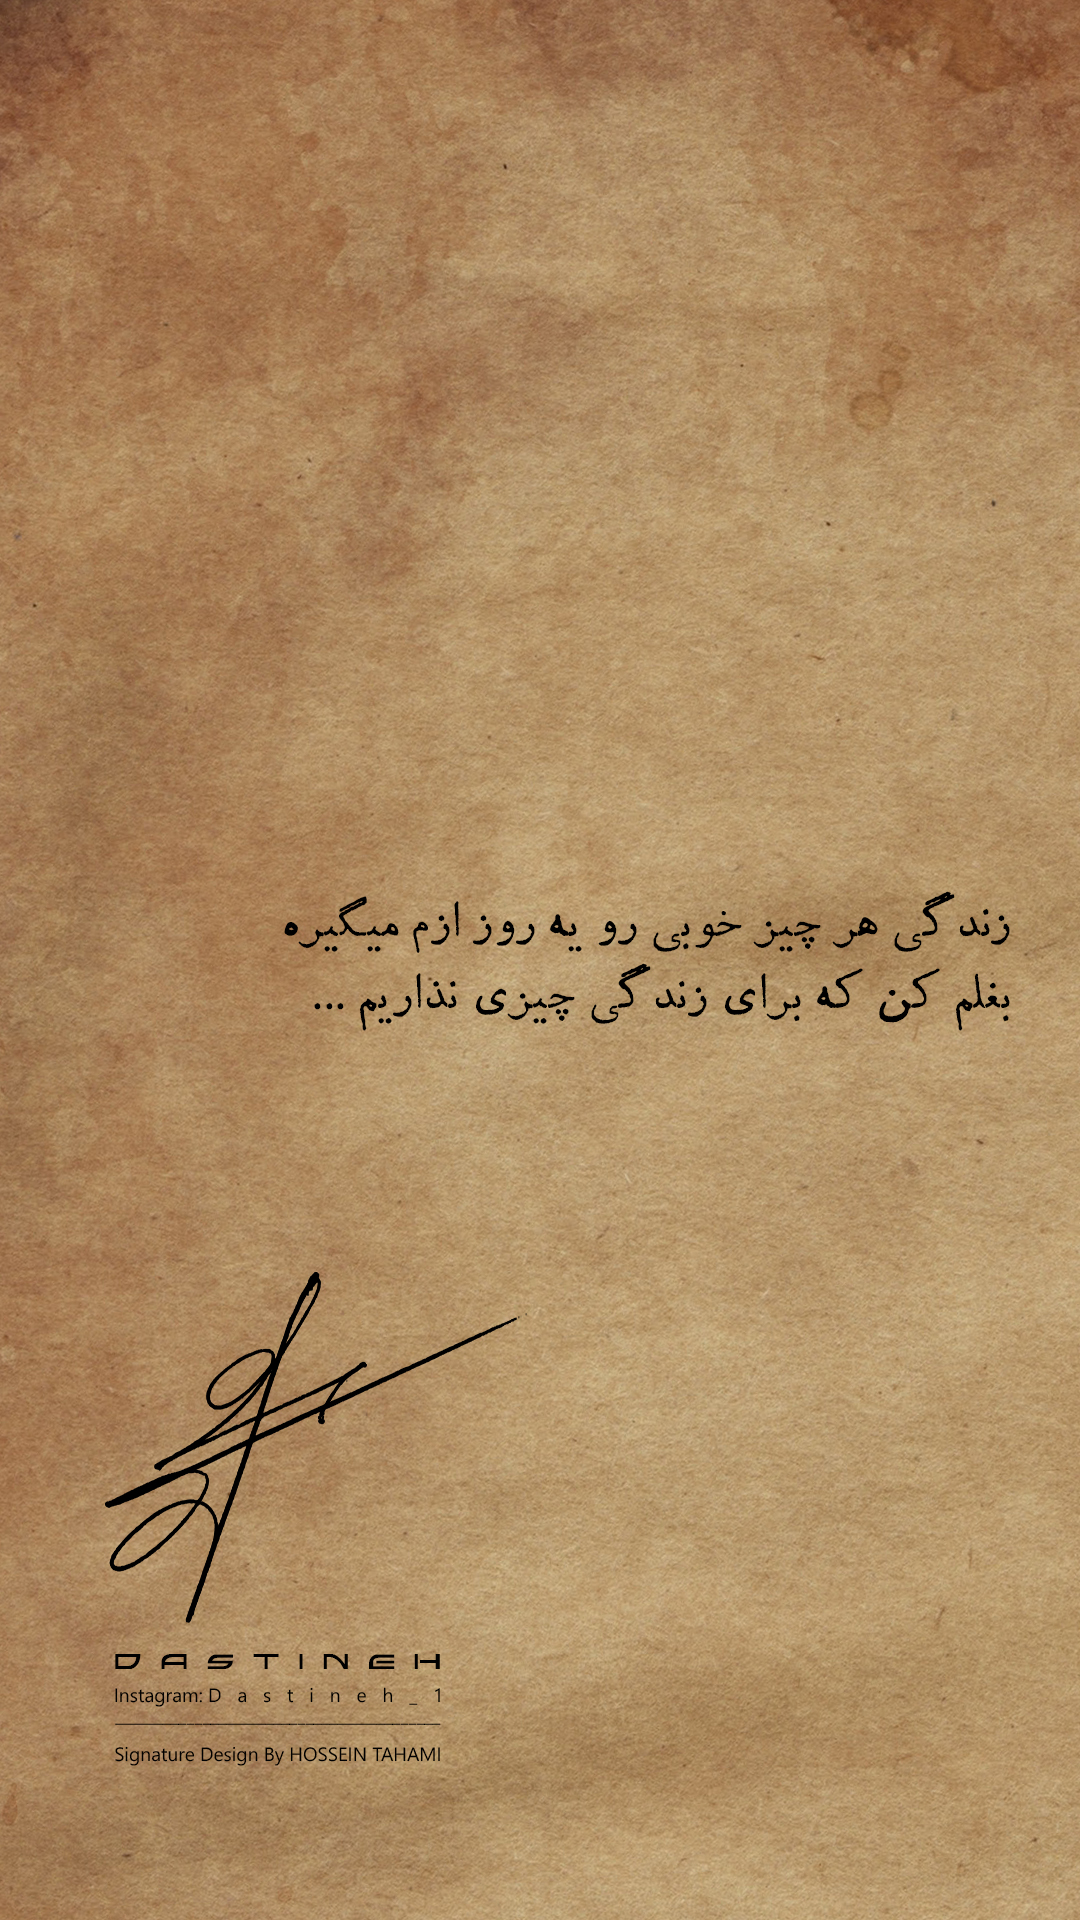 زندگی هر چیز خوبی رو یه روز ازم میگیره
بغلم کن که برای زندگی چیزی نذاریم ...
DASTINEH
Instagram: Dastineh_1
Signature Design By HOSSEIN TAHAMI